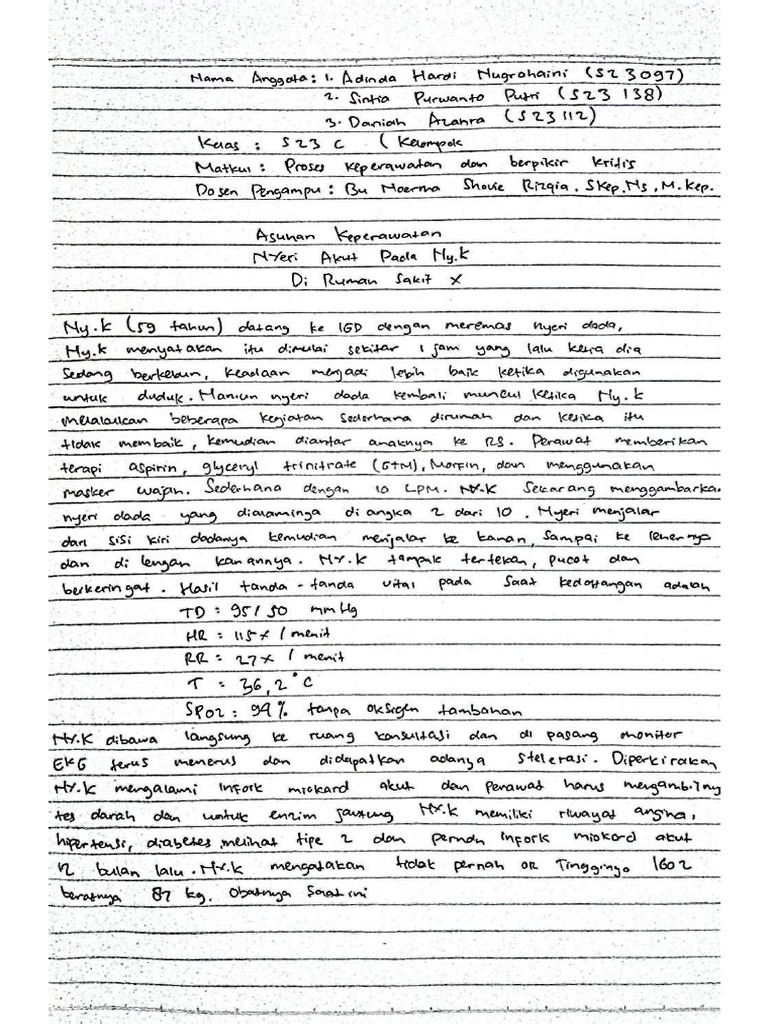 Nama Anggota : 1. Adinda Hardi Nugrohaini (S23097)
2. Sintia Purwanto Putri (S23 138)
3. Daniah Azahra (S23112)
Kelas : S23 C ( Kelompok
Matkul : Proses keperawatan dan berpikir kritis
Dosen Pengampu : Bu Noerma Shovie Rizqia. SKep.Ns, M.kep.
Asuhan Keperawatan
Nyeri Akut Pada Ny.k
Di Rumah Sakit X
Ny.k (59 tahun) datang ke IGD dengan meremas nyeri dada,
Ny.k menyatakan itu dimulai sekitar 1 jam yang lalu ketia dia
Sedang berkebun, keadaan menjadi lebih baik ketika digunakan
untuk duduk. Namun nyeri dada kembali muncul ketika Ny.k
melakukan beberapa kegiatan sederhana dirumah dan ketika itu
tidak membaik, kemudian diantar anaknya ke RS. Perawat memberikan
terapi aspirin, glyceryl trinitrate (GTN), Morfin, dan menggunakan
masker wajah. Sederhana dengan 10 LPM. Ny.k Sekarang menggambarkan
nyeri dada yang dialaminga di angka 2 dari 10. Nyeri menjalar
dari sisi kiri dadanya kemudian menjalar ke kanan, sampai ke lehernya
dan di lengan kanannya. Ny.k tampak tertekan, pucat dan
berkeringat. Hasil tanda-tanda vital pada saat kedatangan adalah
TD : 95/50 mmHg
HR : 115x / menit
RR : 27x / menit
T : 36,2°C
SPO2 : 94% tanpa oksigen tambahan
Ny.k dibawa langsung ke ruang konsultasi dan di pasang monitor
EKG terus menerus dan didapatkan adanya stelerasi. Diperkirakan
Ny.k mengalami infork miokard akut dan perawat harus
tes darah dan untuk enzim jantung Ny.k memiliki riwayat angina,
hipertensi, diabetes melihat tipe 2 dan infork miokard akut
12 bulan lalu. Ny.k mengatakan tidak pernah Tingginya 160
beratnya 87 kg. Obatnya Saat ini